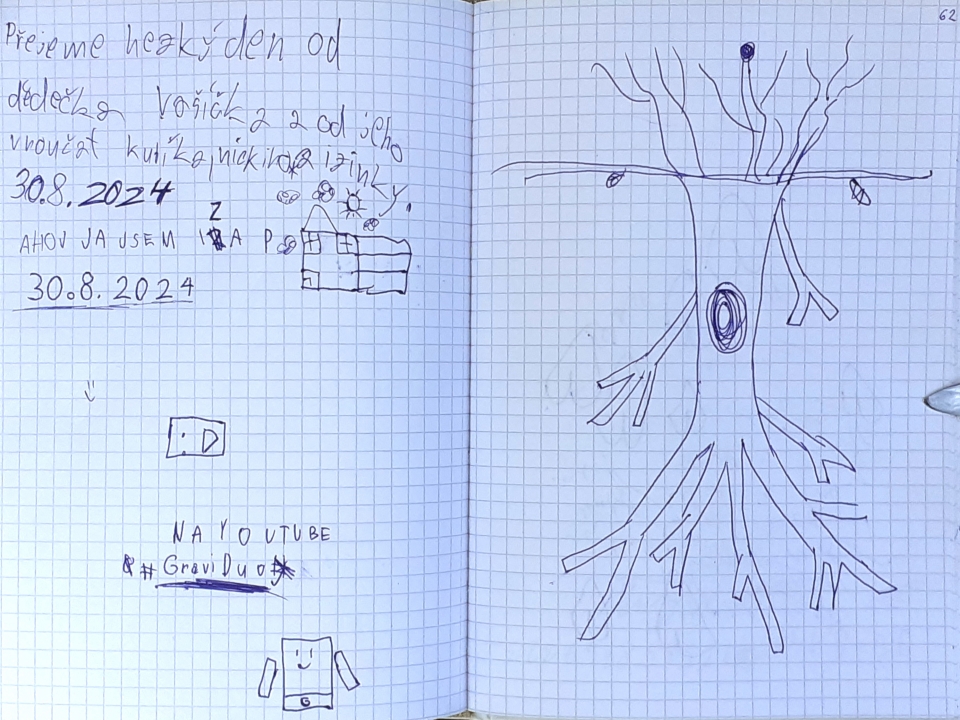 Přejeme hezký den od
dědečka Vošičk a z od jeho
vnoučat kulíška, nickiho a izinky.
30.8.2024
AHOJ JA JSEM IZA P
30.8.2024
:D
NA YOUTUBE
#GraviDuo
G
62